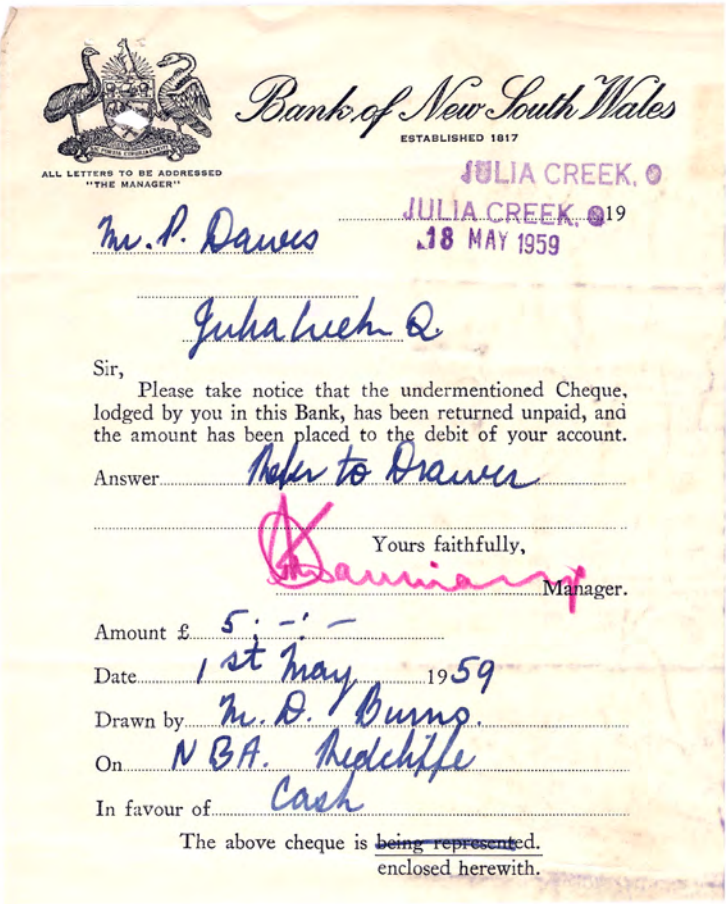 Bank of New South Wales
ESTABLISHED 1817
ALL LETTERS TO BE ADDRESSED
"THE MANAGER"
JULIA CREEK, Q
JULIA CREEK, Q 19
18 MAY 1959
Mr. P. Dawes
Julia Creek Q.
Sir,
Please take notice that the undermentioned Cheque,
lodged by you in this Bank, has been returned unpaid, and
the amount has been placed to the debit of your account.
Answer Refer to Drawer
Yours faithfully,
Manager.
Amount £ 5 : - : -
Date 1st May 1959
Drawn by M. D. Burns.
On NBA. Redcliffe
In favour of Cash
The above cheque is being represented.
enclosed herewith.